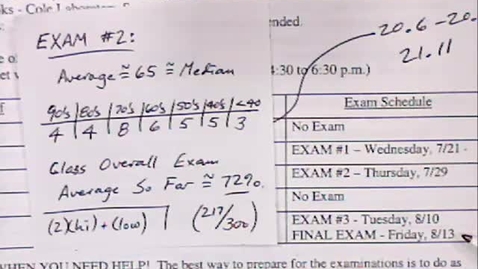 ended.
20.6 - 20.
21.11
EXAM #2:
Average ≅ 65 ≅ Median
4:30 to 6:30 p.m.)
90's | 80's | 70's | 60's | 50's | 40's | <40
4 | 4 | 8 | 6 | 5 | 5 | 3
Class Overall Exam
Average So Far ≅ 72%.
(2)(hi) + (low) (217/300)
Exam Schedule
No Exam
EXAM #1 – Wednesday, 7/21 -
EXAM #2 – Thursday, 7/29
No Exam
EXAM #3 - Tuesday, 8/10
FINAL EXAM - Friday, 8/13
WHEN YOU NEED HELP! The best way to prepare for the examinations is to do as